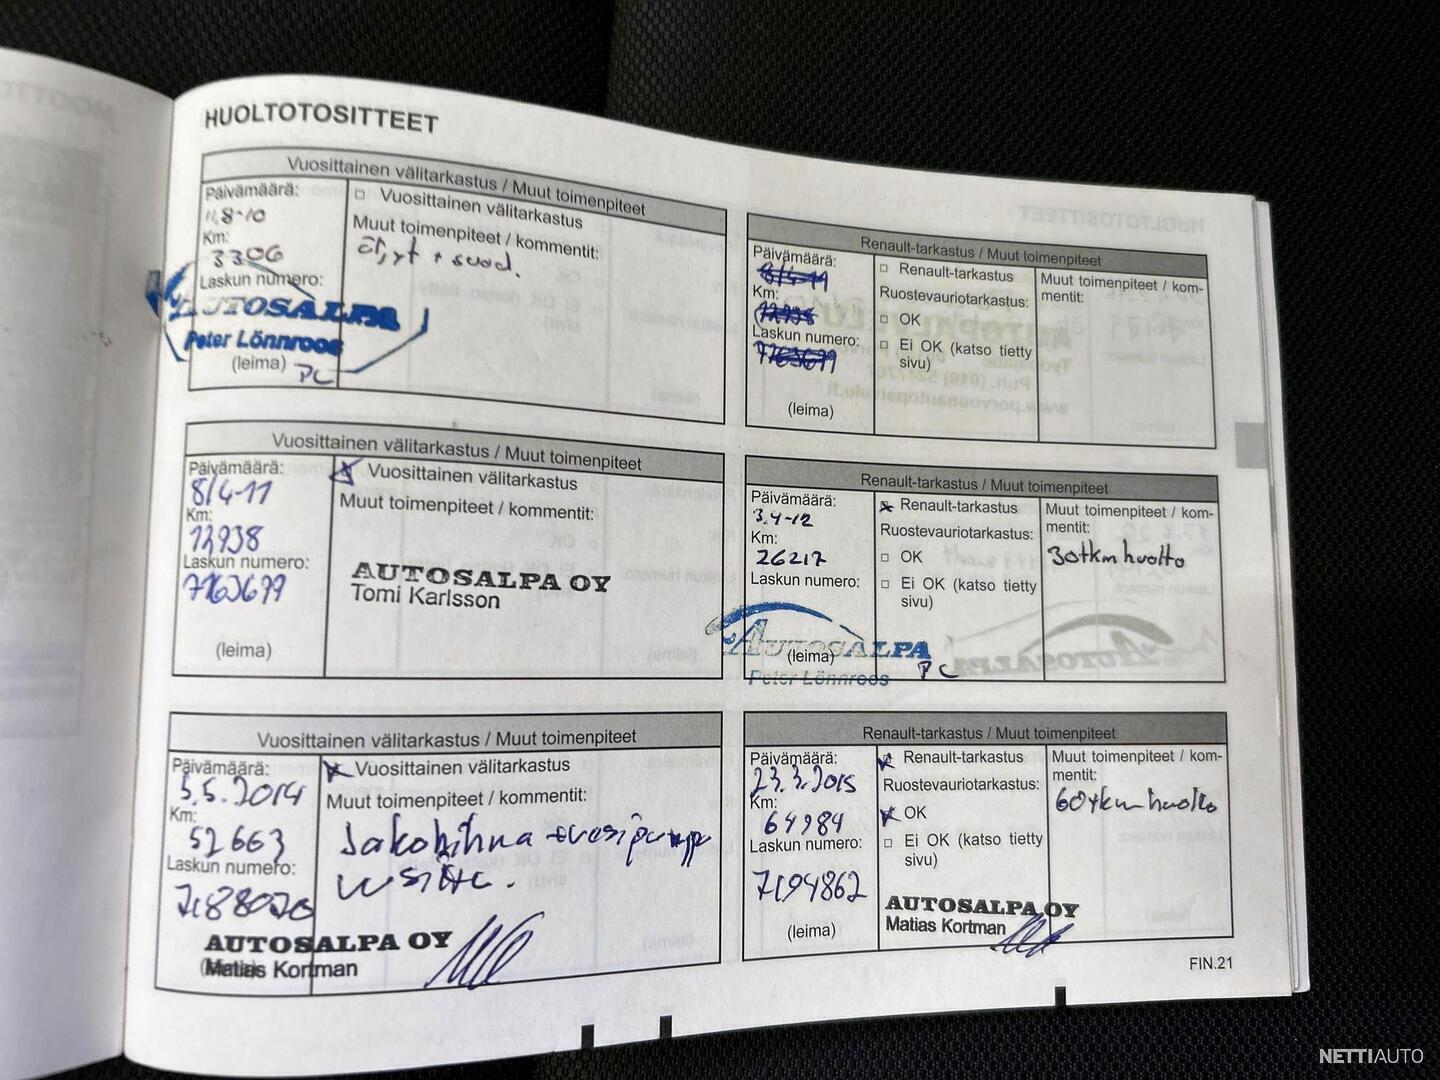 HUOLTOTOSITTEET
Vuosittainen välitarkastus / Muut toimenpiteet
Päivämäärä:
11.8-10
Km:
3306
Laskun numero:
AUTOSALPA
Peter Lönnroos
(leima)
PC
□ Vuosittainen välitarkastus
Muut toimenpiteet / kommentit:
öljyt + suod.
Renault-tarkastus / Muut toimenpiteet
Päivämäärä:
8/4-11
Km:
Laskun numero:
7763699
(leima)
□ Renault-tarkastus
Ruostevauriotarkastus:
□ OK
□ Ei OK (katso tietty
sivu)
Muut toimenpiteet / kom-
mentit:
Vuosittainen välitarkastus / Muut toimenpiteet
Päivämäärä:
8/4-11
Km:
Laskun numero:
(leima)
Vuosittainen välitarkastus
Muut toimenpiteet / kommentit:
AUTOSALPA OY
Tomi Karlsson
Renault-tarkastus / Muut toimenpiteet
Päivämäärä:
3.4-12
Km:
26217
Laskun numero:
AUTOSALPA
(leima)
Peter Lönnroos
PC
Renault-tarkastus
Ruostevauriotarkastus:
□ OK
□ Ei OK (katso tietty
sivu)
Muut toimenpiteet / kom-
mentit:
30tkm huolto
Vuosittainen välitarkastus / Muut toimenpiteet
Päivämäärä:
5.5.2014
Km:
52663
Laskun numero:
7188020
(leima)
Vuosittainen välitarkastus
Muut toimenpiteet / kommentit:
Jakohihna + vesipumppu
uusittu.
AUTOSALPA OY
Matias Kortman
Renault-tarkastus / Muut toimenpiteet
Päivämäärä:
23.3.2015
Km:
64984
Laskun numero:
7194862
(leima)
Renault-tarkastus
Ruostevauriotarkastus:
OK
□ Ei OK (katso tietty
sivu)
Muut toimenpiteet / kom-
mentit:
60tkm huolto
AUTOSALPA OY
Matias Kortman
FIN.21
NETTIAUTO